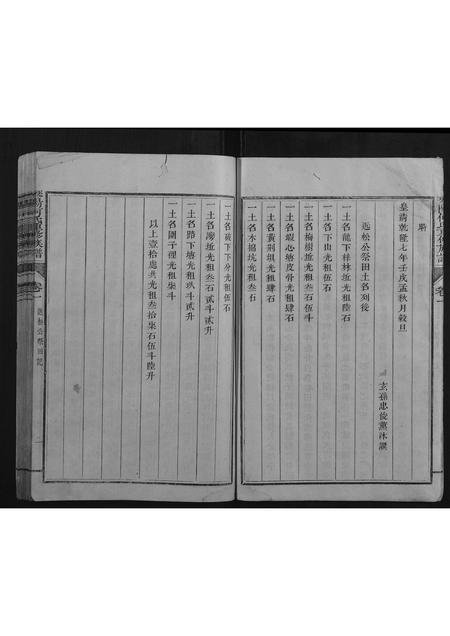 皇清乾隆七年壬戌孟秋月穀旦
玄孫忠俊薰沐譔
公祭田土名列後
一土名龍下祿林坵光租陸石
一土名下山光租伍石
一土名梅樹坵光租叁石伍斗
一土名蝦心塘皮骨光租肆石
一土名黃荊垻光租肆石
一土名木搗坑光租叁石
一土名 下分光租伍石
一土名 坵光租叁石貳斗貳升
一土名路下塘光租玖斗貳升
一土名園子裡光租柒斗
以上壹拾處共光租叁拾柒石伍斗陸升
卷一
公祭田記
卷一